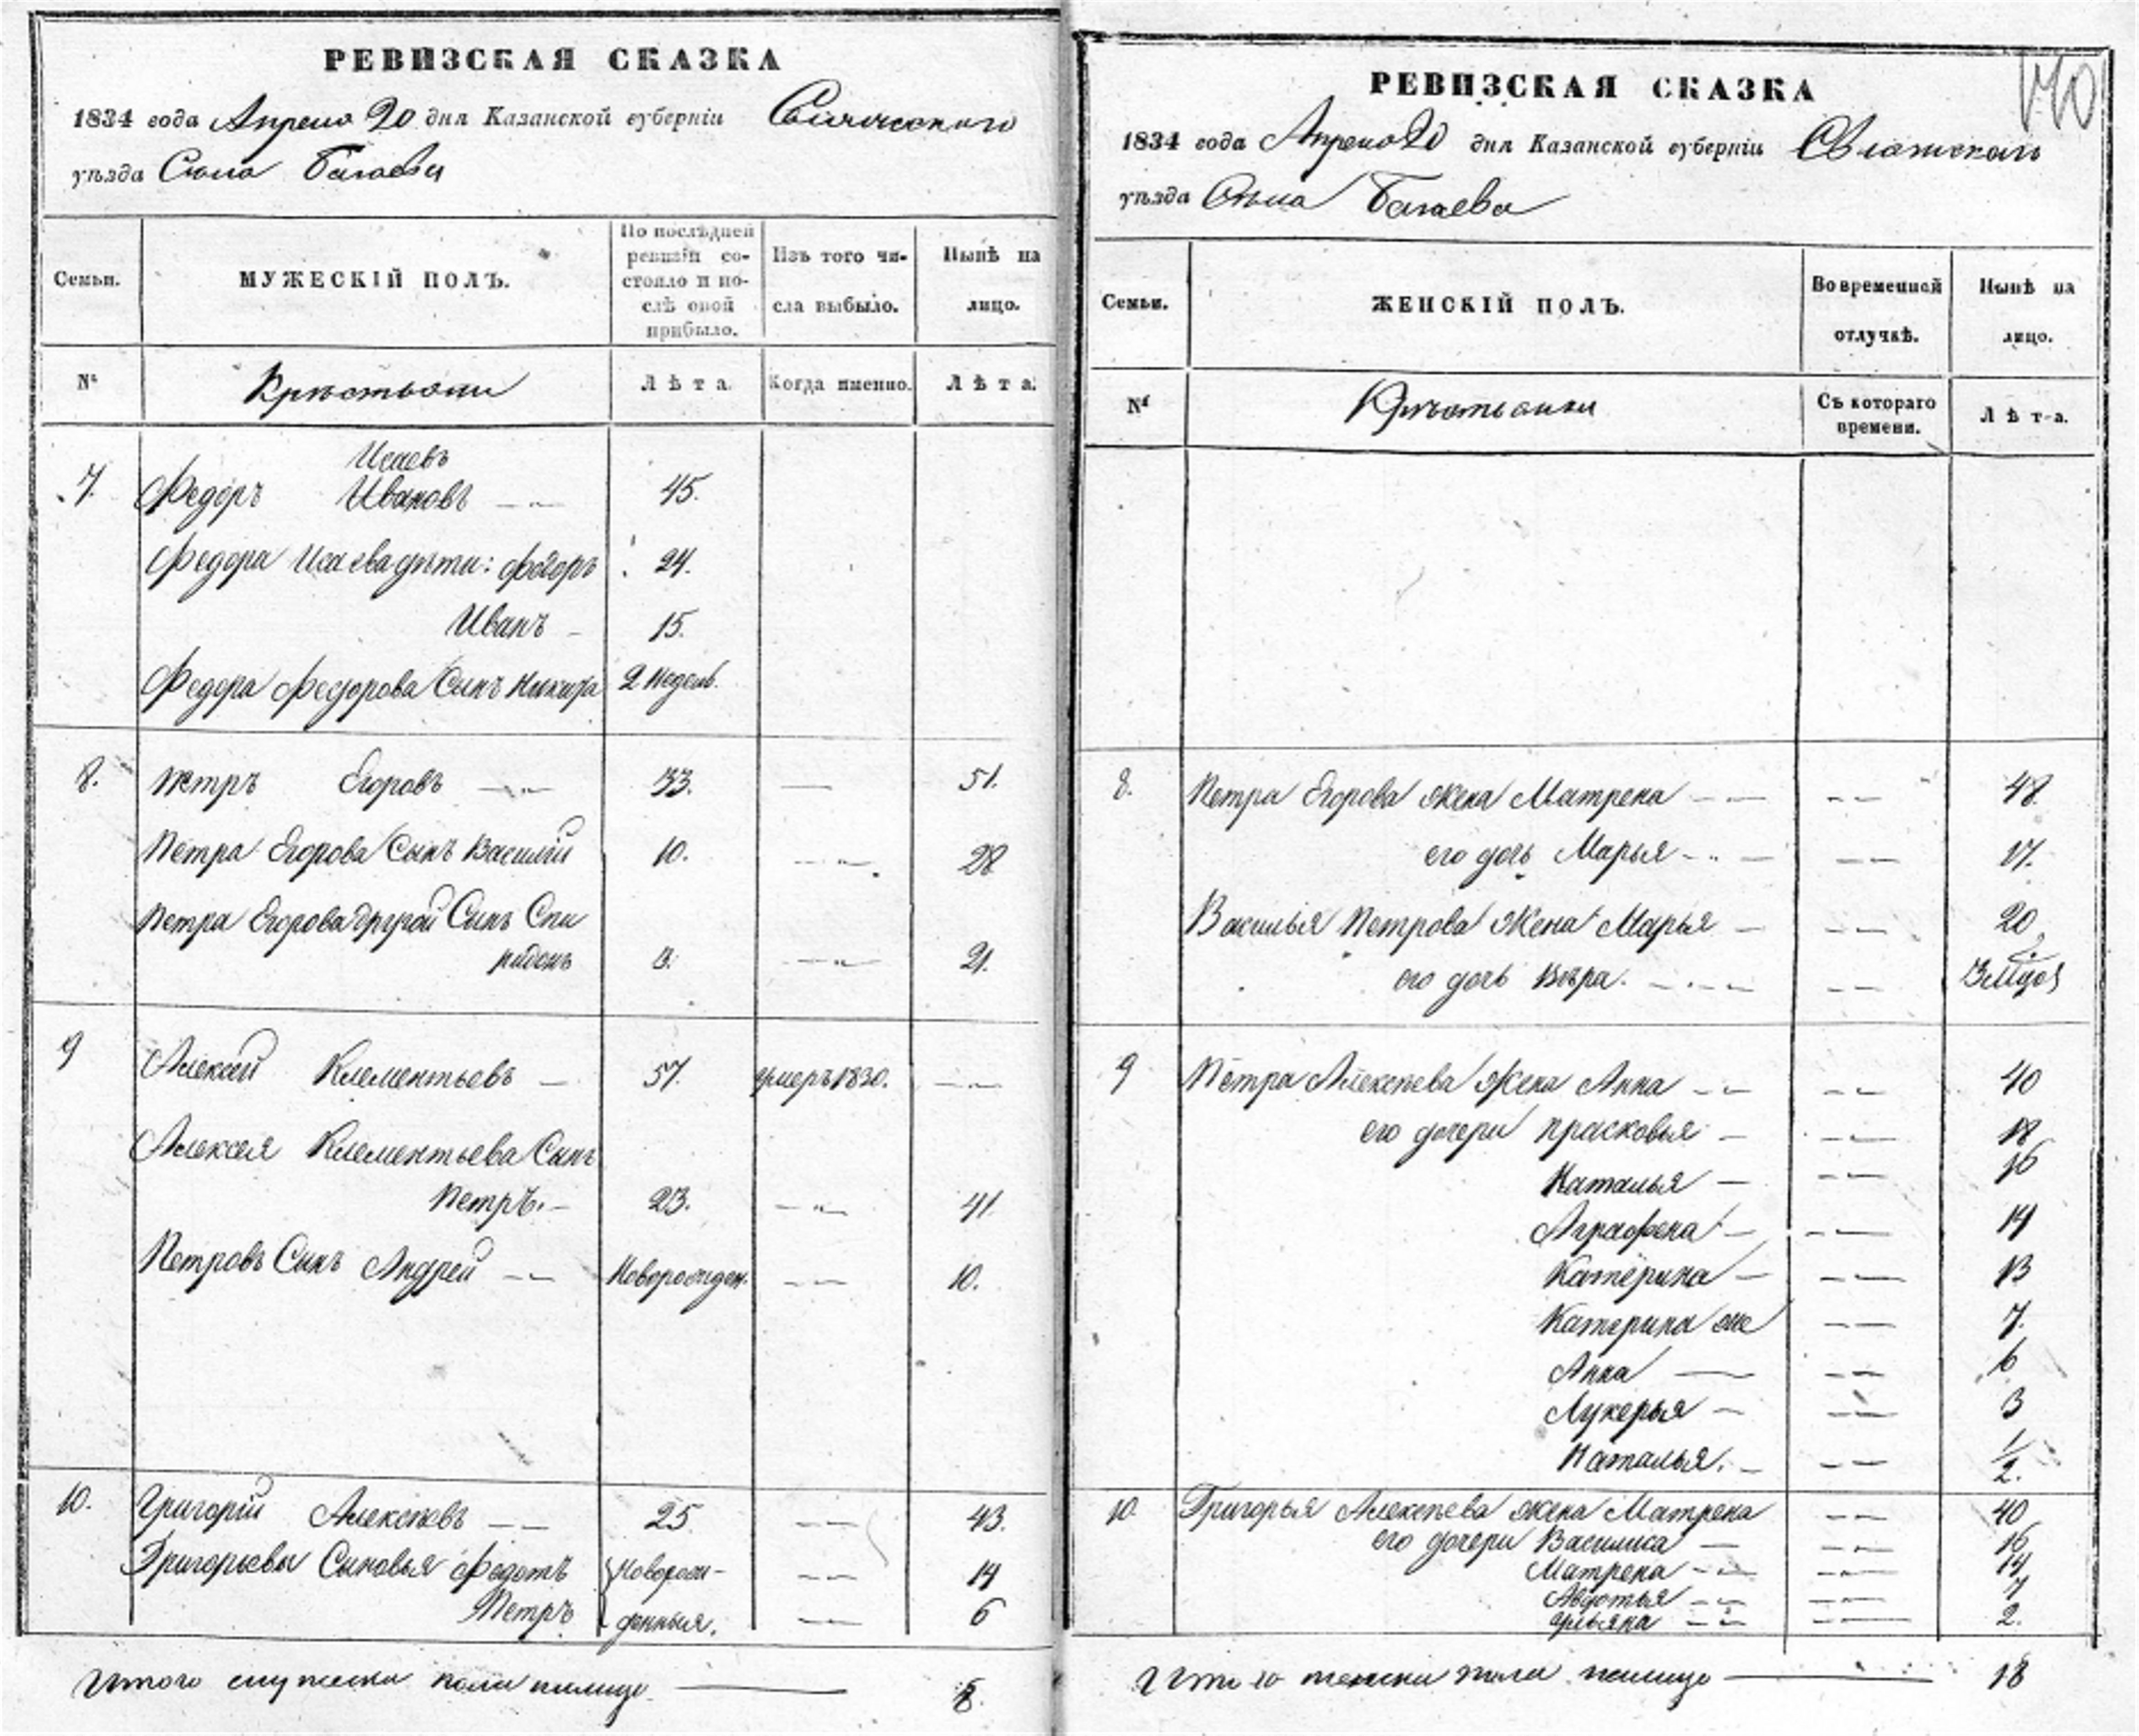 РЕВИЗСКАЯ СКАЗКА
1834 года Апреля 20 дня Казанской губернiи Свiяжскаго
уѣзда Села Багаева
Семьи.
МУЖЕСКIЙ ПОЛЪ.
По послѣдней ревизiи состояло и послѣ оной прибыло.
Изъ того числа выбыло.
Нынѣ на лицо.
№
Крѣстьяни
Лѣта.
Когда именно.
Лѣта.
Исаевъ
7. Федоръ Ивановъ 45.
Федора Исаева дѣти: Федоръ 24.
Иванъ 15.
Федора Федорова Сынъ Никита 2 недель.
8. Петръ Егоровъ 33. 51.
Петра Егорова Сынъ Василiй 10. 28
Петра Егорова другой Сынъ Спи
ридонъ 3. 21.
9 Алексей Клементьевъ 57. умеръ 1830.
Алексея Клементьева Сынъ
Петръ. 23. 41
Петровъ Сынъ Андрей Новорожден. 10.
10. Григорiй Алексѣевъ 25. 43.
Григорьевы Сыновья Федотъ Новорож- 14
Петръ денныя. 6
Итого мужеска пола налицо 8
РЕВИЗСКАЯ СКАЗКА
140
1834 года Апреля 20 дня Казанской губернiи Свiяжскаго
уѣзда Села Багаева
Семьи.
ЖЕНСКIЙ ПОЛЪ.
Во временной отлучкѣ.
Нынѣ на лицо.
№
Крѣстьянки
Съ котораго времени.
Лѣта.
8. Петра Егорова жена Матрена 48.
его дочь Марья 17.
Василья Петрова Жена Марья 20
его дочь Вѣра. 3
9 Петра Алексѣева Жена Анна 40
его дочери Прасковья 18
Наталья 16
Аграфена 14
Катерина 13
Катерина же 7.
Анна 6
Лукерья 3
Наталья. 1/2.
10 Григорья Алексѣева жена Матрена 40
его дочери Василиса 16
Матрена 14
Авдотья 7
Ульяна 2.
Итого женска пола налицо 18